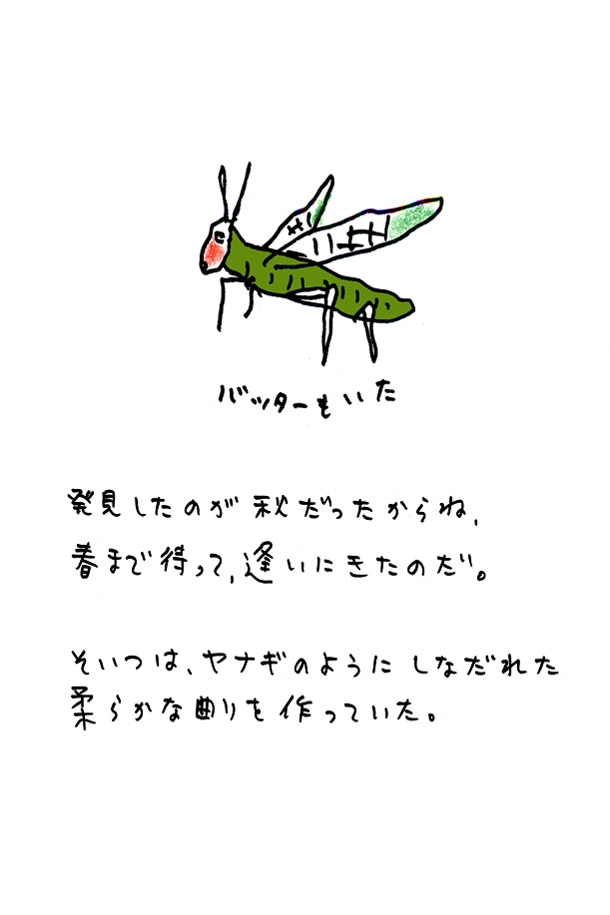 バッターもいた
発見したのが秋だったからね、
春まで待って、逢いにきたのだ。
そいつは、ヤナギのようにしなだれた
柔らかな曲りを作っていた。